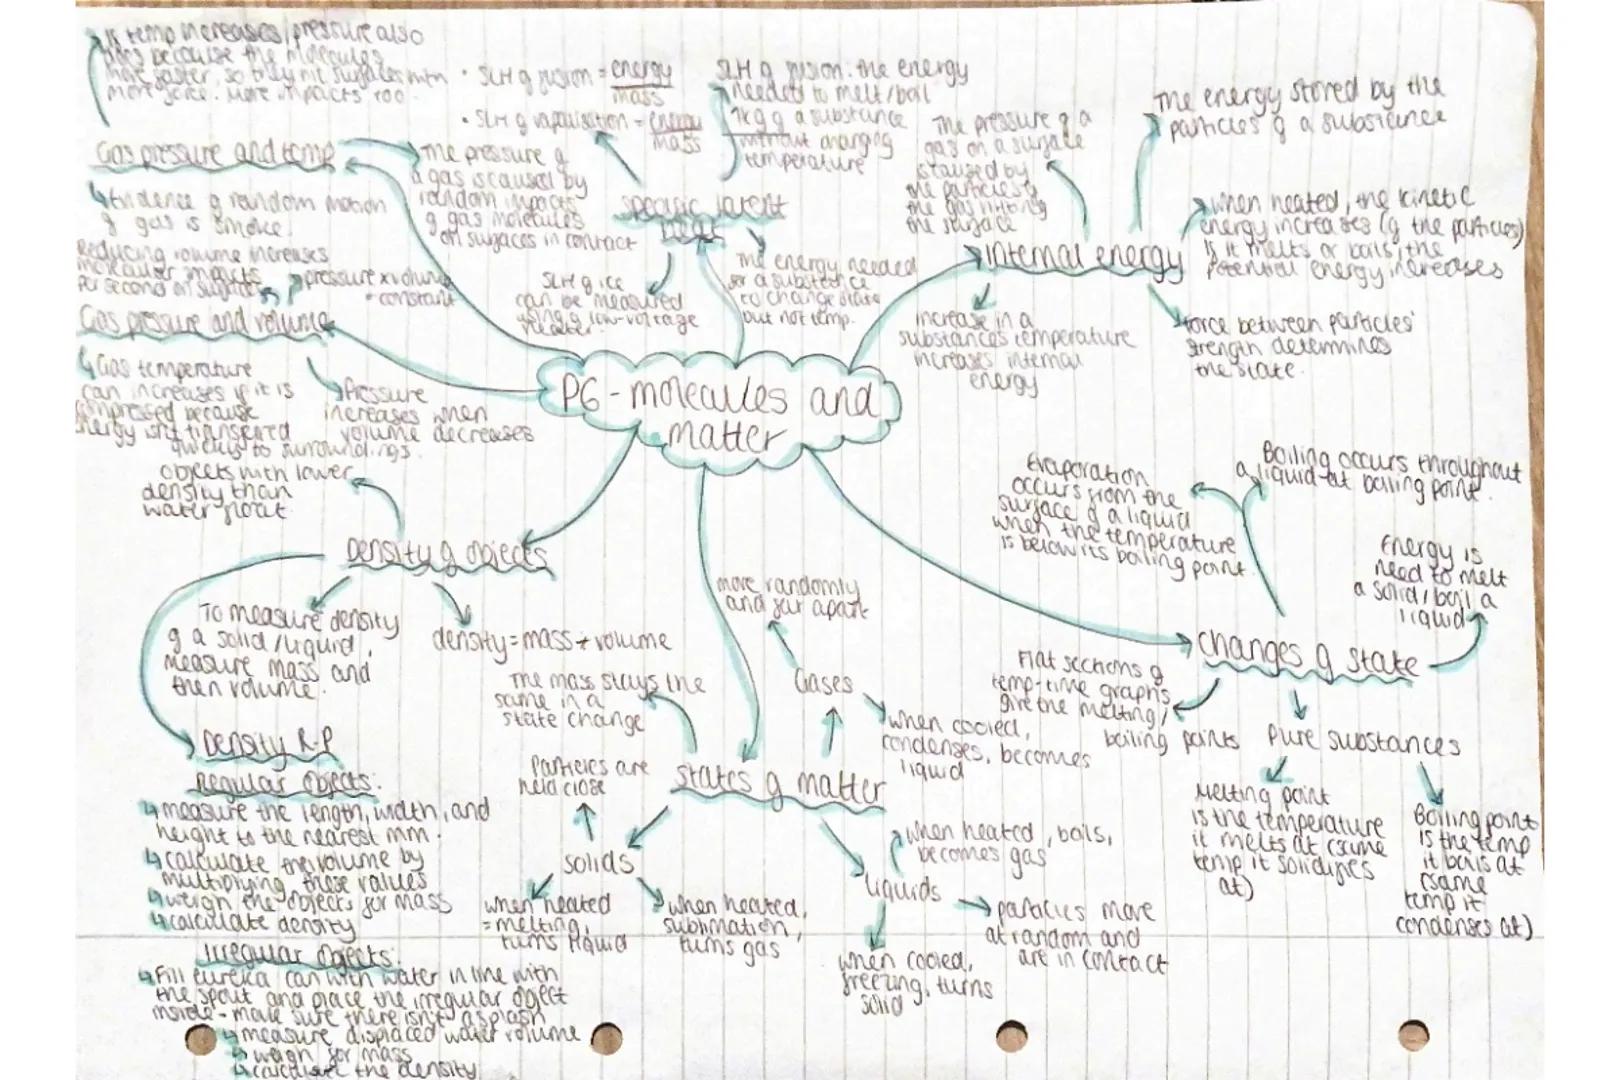 If temp increases, pressure also
does because the molecules
move faster, so they hit surfaces with
more force. More impacts too.
Gas pressure and temp
Evidence of random motion
of gas is smoke.
The pressure of
a gas is caused by
random impacts
of gas molecules
on surfaces in contact
• SLH of fusion = energy
mass
• SLH of vaporisation = energy
mass
SLH of fusion: the energy
needed to melt/boil
1kg of a substance
without changing
temperature
specific latent
heat
SLH of ice
can be measured
using a low-voltage
heater.
The energy needed
for a substance
to change state
but not temp.
The pressure of a
gas on a surface
is caused by
the particles of
the gas hitting
the surface
The energy stored by the
particles of a substance
Internal energy
when heated, the kinetic
energy increases (of the particles)
If it melts or boils, the
potential energy increases
increase in a
substances temperature
increases internal
energy
force between particles'
strength determines
the state.
Reducing volume increases
molecular impacts
per second on surfaces
pressure x volume
= constant
Gas pressure and volume
Gas temperature
can increases if it is
compressed because
energy isnt transferred
quickly to surroundings.
Pressure
increases when
volume decreases
P6 - molecules and
matter
objects with lower
density than
water float
Density of objects
To measure density
of a solid/liquid,
measure mass and
then volume.
density = mass ÷ volume
Density R.P
Regular objects:
measure the length, width, and
height to the nearest mm.
calculate the volume by
multiplying these values
weigh the objects for mass
calculate density
Irregular objects:
Fill eureka can with water in line with
the spout and place the irregular object
inside - make sure there isn't a splash
measure displaced water volume
weigh for mass
calculate the density
move randomly
and far apart
Gases
when cooled,
condenses, becomes
liquid
The mass stays the
same in a
state change
states of matter
Particles are
held close
solids
when heated
= melting,
turns liquid
when heated,
sublimation,
turns gas
when heated, boils,
becomes gas
liquids
particles move
at random and
are in contact
when cooled,
freezing, turns
solid
Evaporation
occurs from the
surface of a liquid
when the temperature
is below its boiling point.
Boiling occurs throughout
a liquid at boiling point.
Energy is
need to melt
a solid/boil a
liquid
changes of state
Flat sections of
temp-time graphs
give the melting/
boiling points
Pure substances
Melting point
is the temperature
it melts at (same
temp it solidifies
at)
Boiling point
is the temp
it boils at
(same
temp it
condenses at)